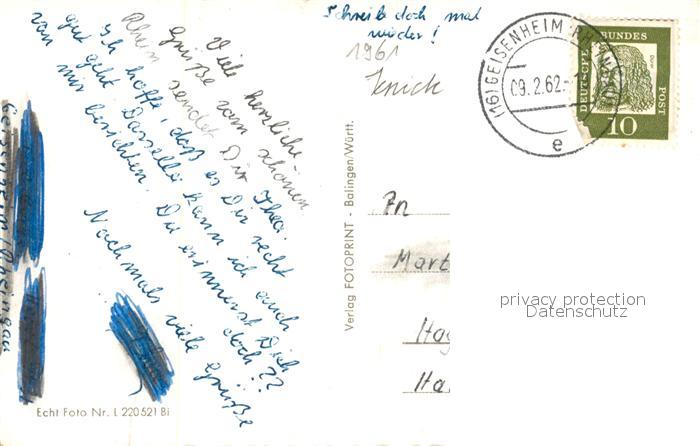 Schreib doch mal
wieder!
1961
Knick
(16) GEISENHEIM RHEINGAU
09.2.62.
e
DEUTSCHE BUNDESPOST
Dürer
10
Viele herzliche
Grüße vom schönen
Rhein sendet Dir Thea.
Ich hoffe, daß es Dir recht
gut geht. Dasselbe kann ich auch
von mir berichten. Du erinnerst Dich
doch??
Nochmals viele Grüße
Geisenheim/Rheingau
Verlag FOTOPRINT - Balingen/Württ.
Echt Foto Nr. L 220521 Bi
An
privacy protection
Datenschutz